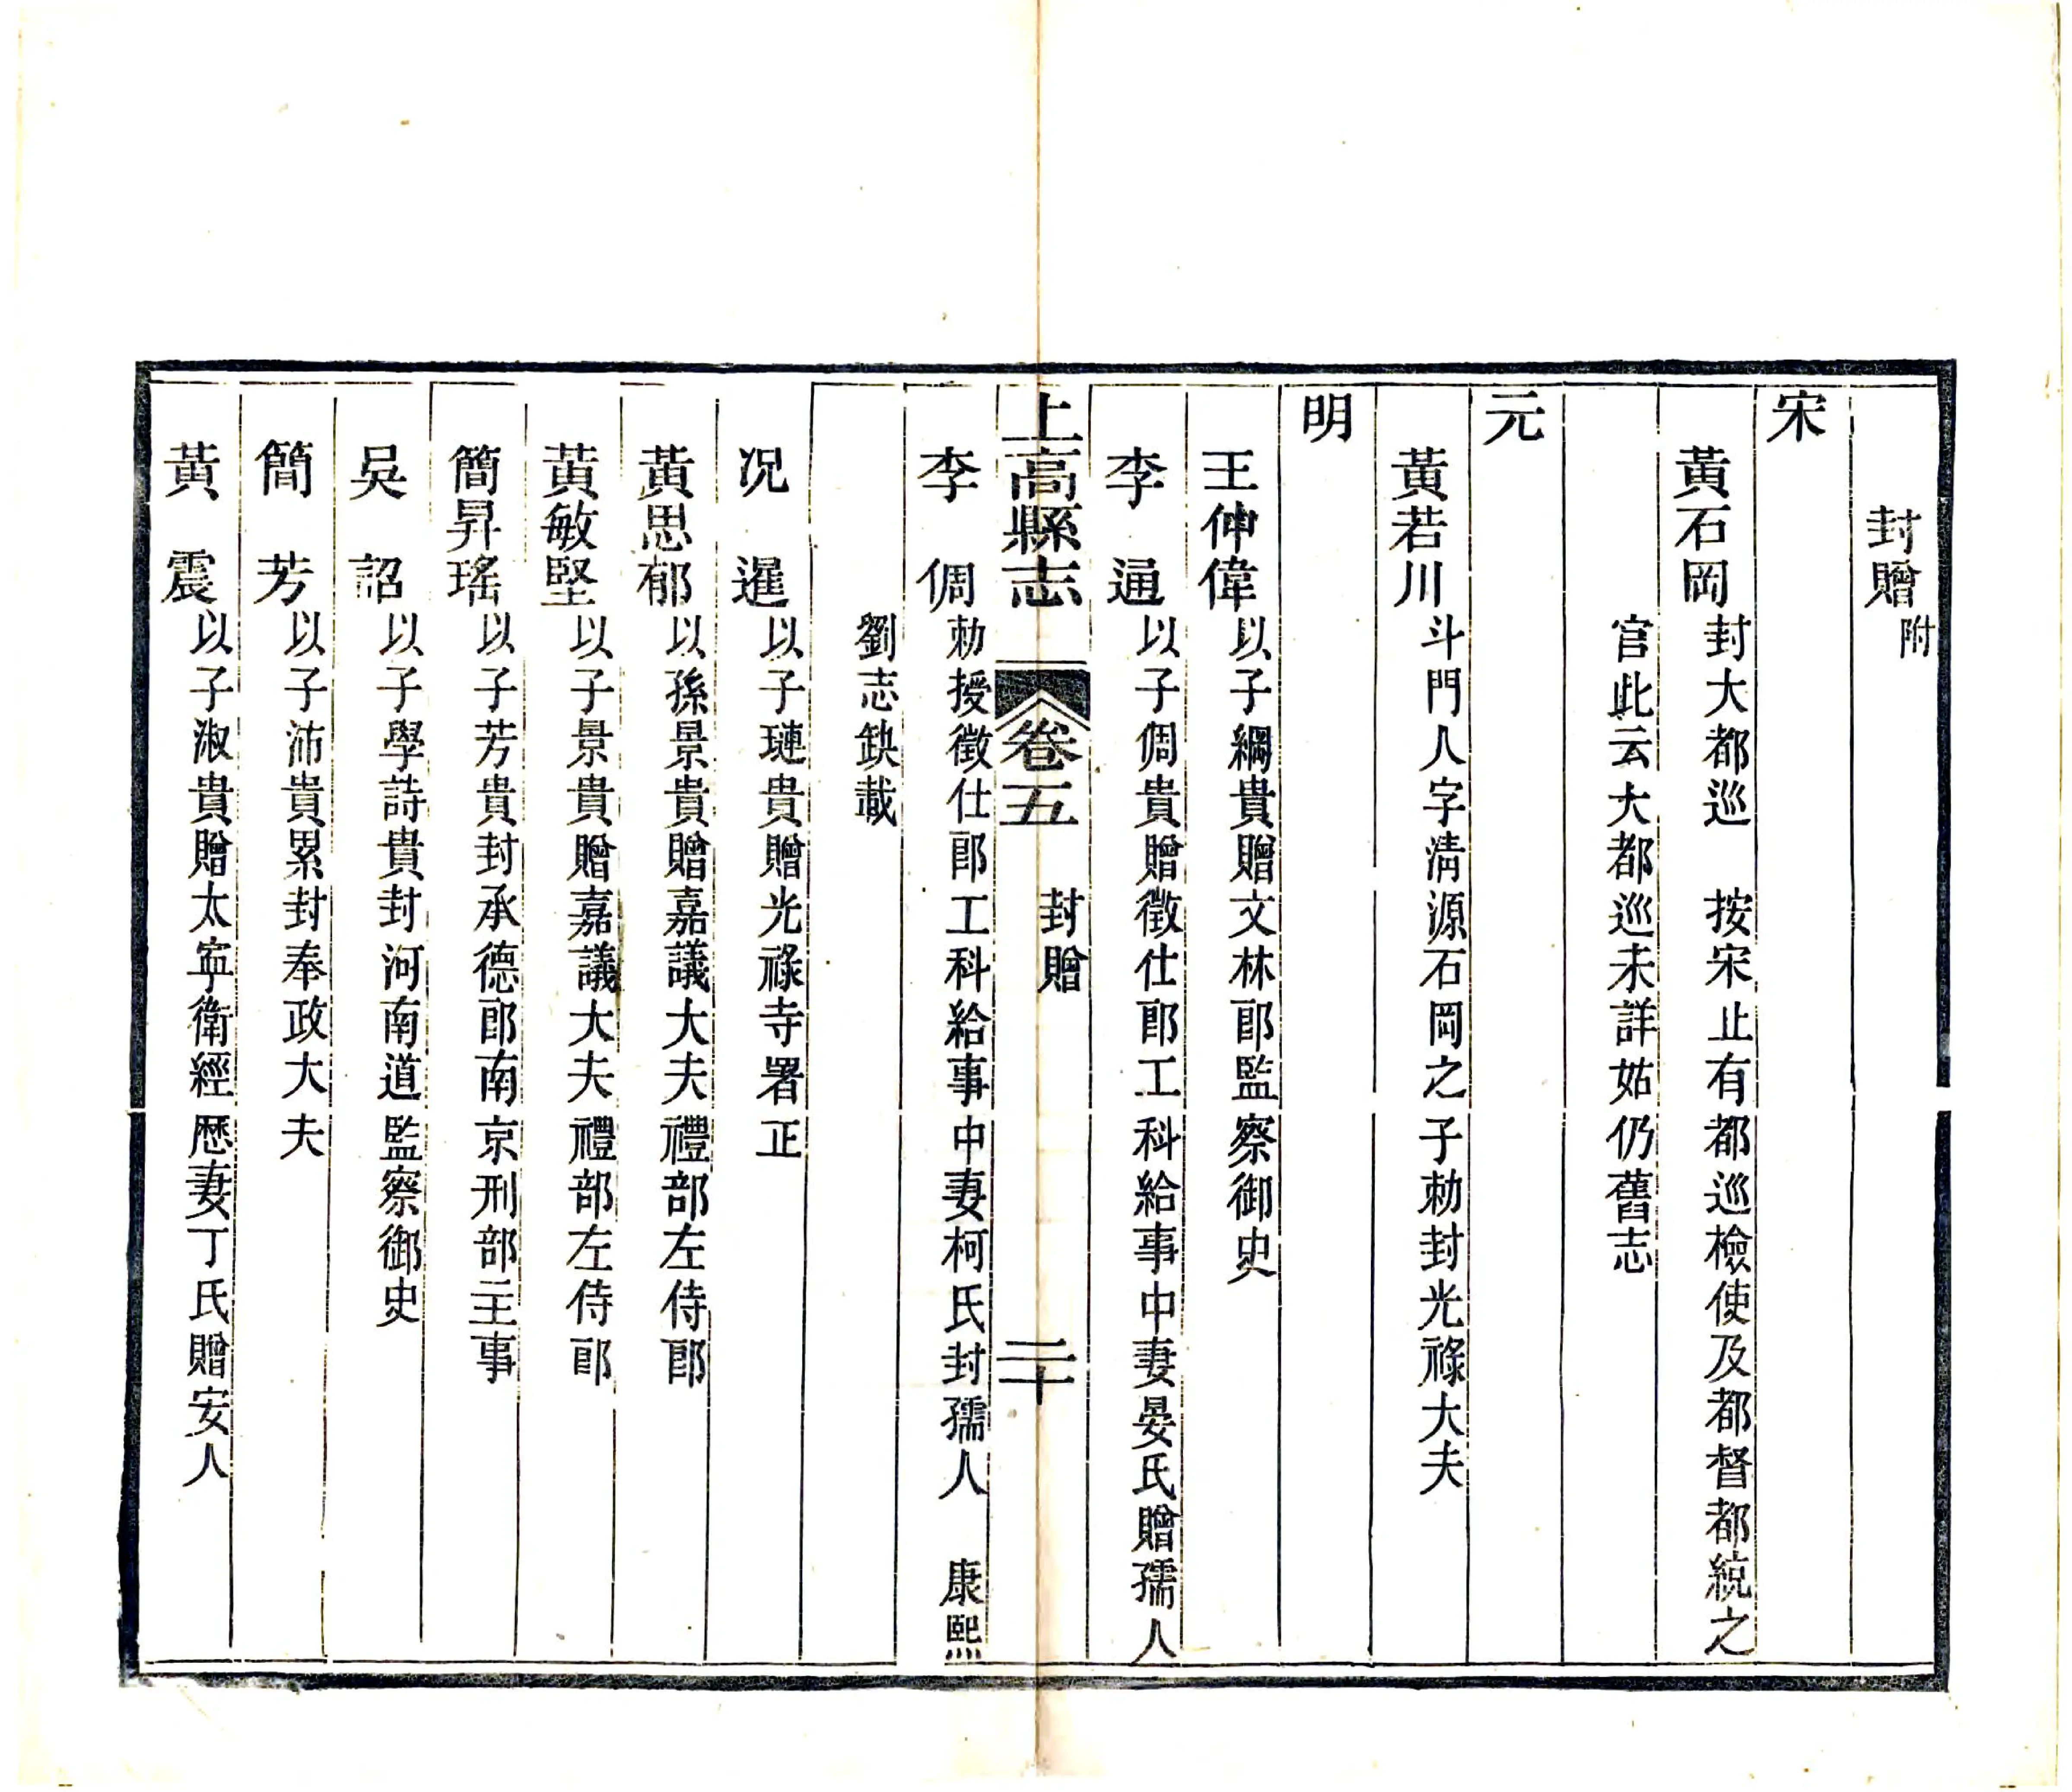 封贈附
宋
黃石岡封大都巡　按宋止有都巡檢使及都督都統之
官此云大都巡未詳姑仍舊志
元
黃若川斗門人字清源石岡之子勅封光祿大夫
明
王伸偉以子綱貴贈文林郎監察御史
李　通以子倜貴贈徵仕郎工科給事中妻晏氏贈孺人
上高縣志　卷五　封贈　二十
李　倜勅授徵仕郎工科給事中妻柯氏封孺人　康熙
劉志缺載
况　暹以子璉貴贈光祿寺署正
黃思郁以孫景貴贈嘉議大夫禮部左侍郎
黃敏堅以子景貴贈嘉議大夫禮部左侍郎
簡昇瑤以子芳貴封承德郎南京刑部主事
吳　詔以子學詩貴封河南道監察御史
簡　芳以子沛貴累封奉政大夫
黃　震以子淑貴贈太寧衛經歷妻丁氏贈安人